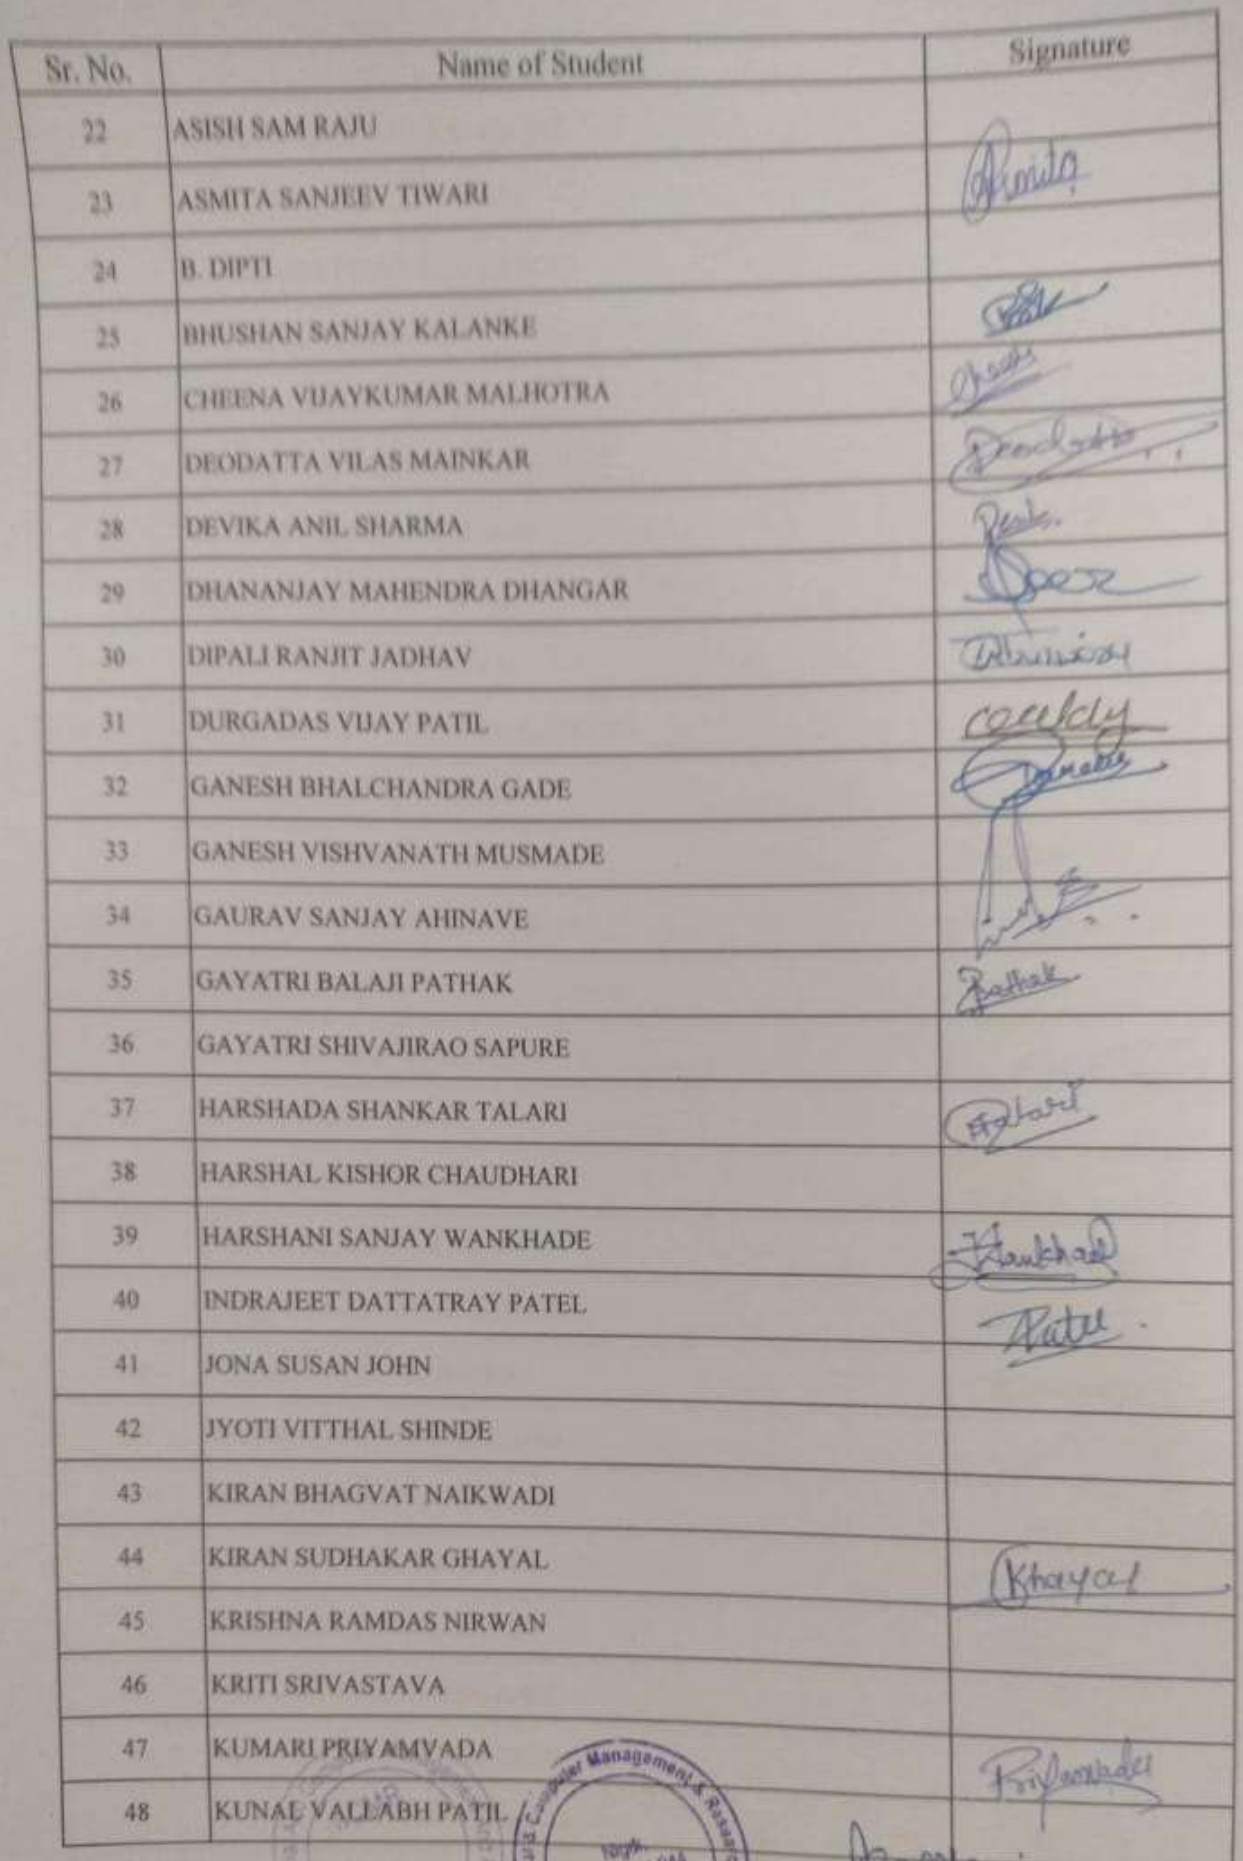 Sr. No. Name of Student Signature
22 ASISH SAM RAJU
23 ASMITA SANJEEV TIWARI Asmita
24 B. DIPTI
25 BHUSHAN SANJAY KALANKE
26 CHEENA VIJAYKUMAR MALHOTRA
27 DEODATTA VILAS MAINKAR Deodatta
28 DEVIKA ANIL SHARMA
29 DHANANJAY MAHENDRA DHANGAR
30 DIPALI RANJIT JADHAV
31 DURGADAS VIJAY PATIL
32 GANESH BHALCHANDRA GADE
33 GANESH VISHVANATH MUSMADE
34 GAURAV SANJAY AHINAVE
35 GAYATRI BALAJI PATHAK Pathak
36 GAYATRI SHIVAJIRAO SAPURE
37 HARSHADA SHANKAR TALARI
38 HARSHAL KISHOR CHAUDHARI
39 HARSHANI SANJAY WANKHADE
40 INDRAJEET DATTATRAY PATEL
41 JONA SUSAN JOHN
42 JYOTI VITTHAL SHINDE
43 KIRAN BHAGVAT NAIKWADI
44 KIRAN SUDHAKAR GHAYAL
45 KRISHNA RAMDAS NIRWAN
46 KRITI SRIVASTAVA
47 KUMARI PRIYAMVADA
48 KUNAL VALLABH PATIL
Computer Management &